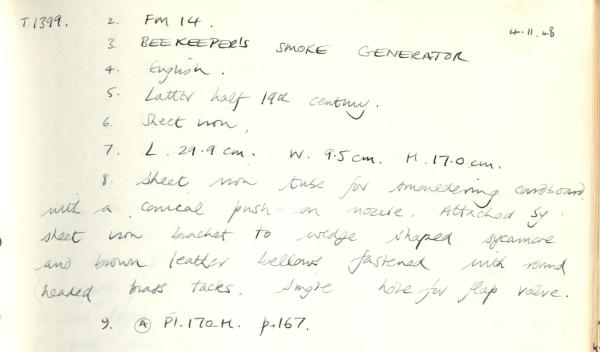 T.1399. 2. FM 14. 4.11.48
3. BEEKEEPER'S SMOKE GENERATOR
4. English.
5. Latter half 19th century.
6. Sheet iron.
7. L. 29.9 cm. W. 9.5 cm. H. 17.0 cm.
8. Sheet iron tube for smouldering cardboard
with a conical push-on nozzle. Attached by
sheet iron bracket to wedge shaped sycamore
and brown leather bellows fastened with round
headed brass tacks. Single hole for flap valve.
9. Ⓐ Pl. 170-H. p.167.